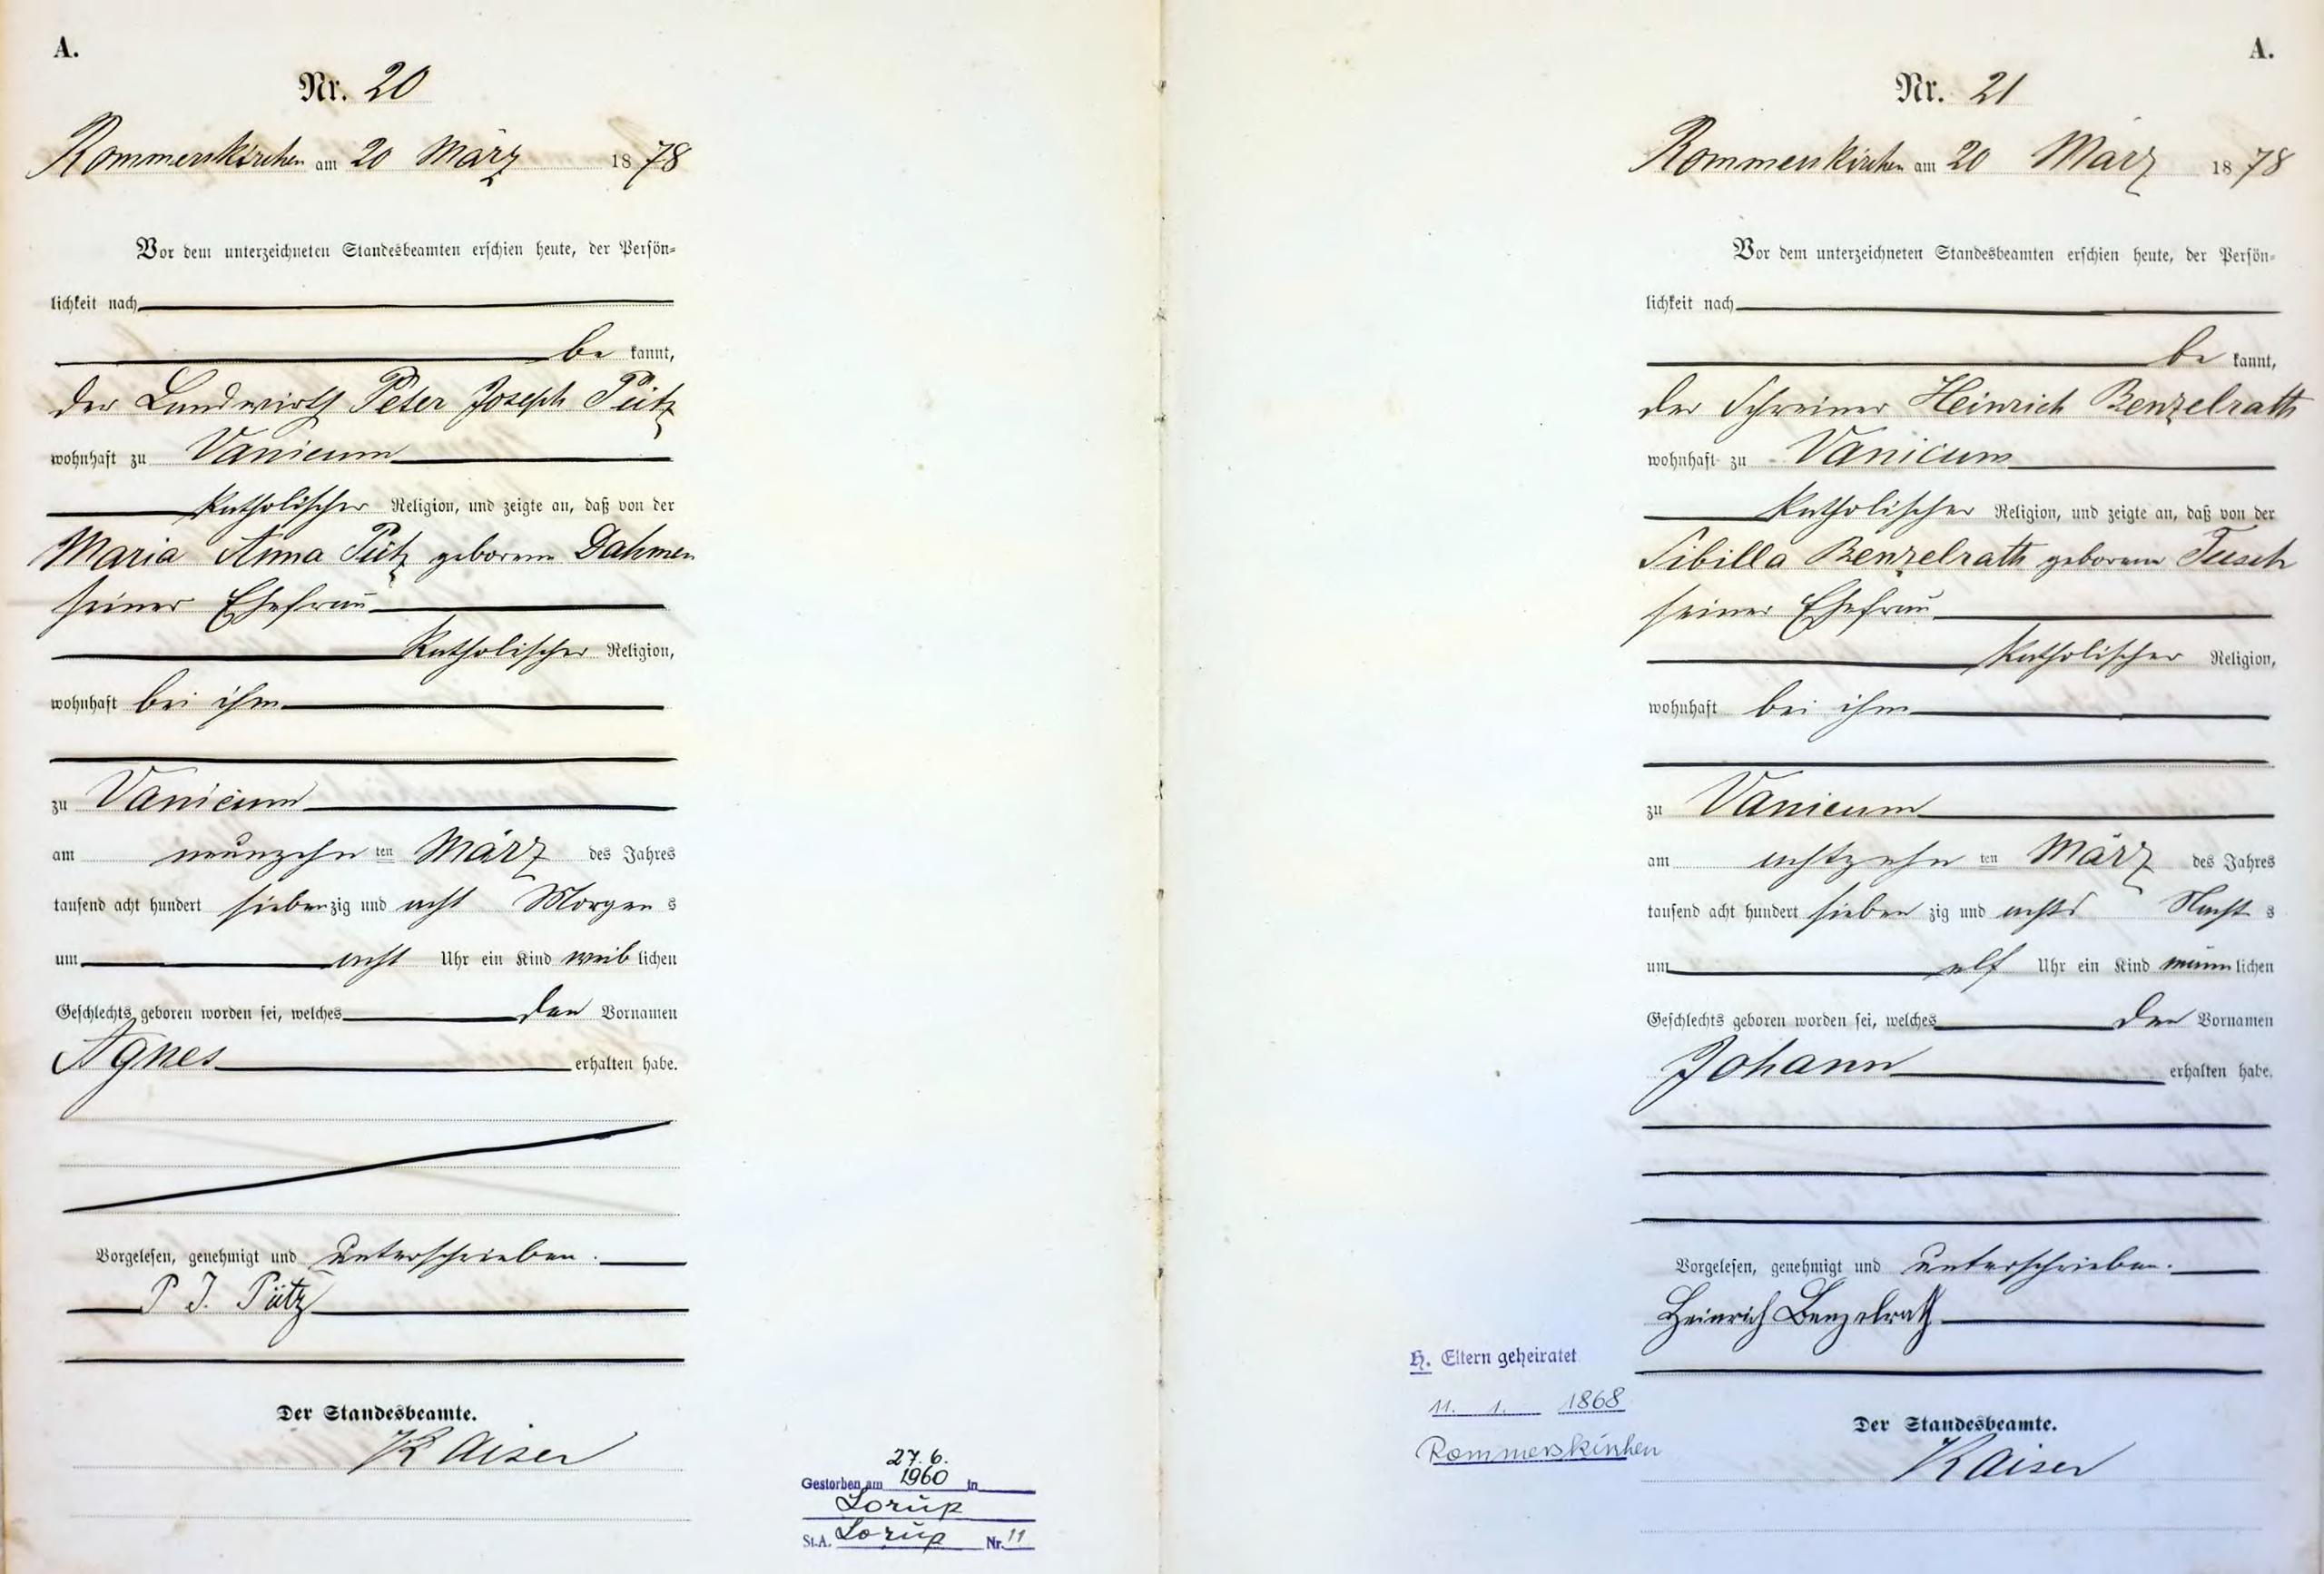 A.
Nr. 20
Rommerskirchen am 20 März 1878
Vor dem unterzeichneten Standesbeamten erschien heute, der Persön-
lichkeit nach
be kannt,
der Landwirth Peter Joseph Pütz
wohnhaft zu Vanicum
katholischer Religion, und zeigte an, daß von der
Maria Anna Pütz geborene Dahmen
seiner Ehefrau
katholischer Religion,
wohnhaft bei ihm
zu Vanicum
am neunzehn ten März des Jahres
tausend acht hundert siebenzig und acht Morgens
um acht Uhr ein Kind weiblichen
Geschlechts geboren worden sei, welches den Vornamen
Agnes erhalten habe.
Vorgelesen, genehmigt und unterschrieben.
P J. Pütz
Der Standesbeamte.
Kaiser
27. 6.
Gestorben am 1960 in
Lorup
St.A. Lorup Nr. 11
A.
Nr. 21
Rommerskirchen am 20 März 1878
Vor dem unterzeichneten Standesbeamten erschien heute, der Persön-
lichkeit nach
be kannt,
der Schreiner Heinrich Benzelrath
wohnhaft zu Vanicum
katholischer Religion, und zeigte an, daß von der
Sibilla Benzelrath geborene Tesch
seiner Ehefrau
katholischer Religion,
wohnhaft bei ihm
zu Vanicum
am achtzehn ten März des Jahres
tausend acht hundert siebenzig und acht Nachts
um elf Uhr ein Kind männlichen
Geschlechts geboren worden sei, welches den Vornamen
Johann erhalten habe.
Vorgelesen, genehmigt und unterschrieben.
Heinrich Benzelrath
H. Eltern geheiratet
11. 1. 1868
Rommerskirchen
Der Standesbeamte.
Kaiser